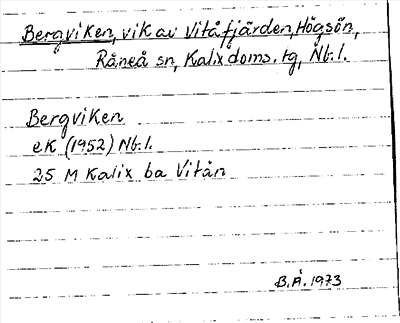 Bergviken, vik av Vitåfjärden, Högsön,
Råneå sn, Kalix doms. tg, Nb. l.
Bergviken
ek (1952) Nb. l.
25 M Kalix ba Vitån
B.Å. 1973